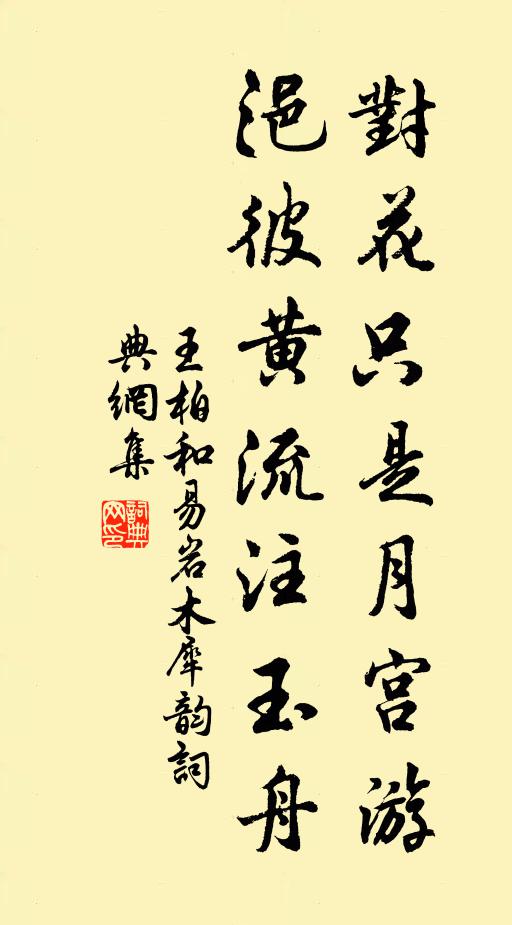 對花只是月宮游
浥彼黃流注玉舟
王柏和易岩木犀韵詞
典網集
詞典網印